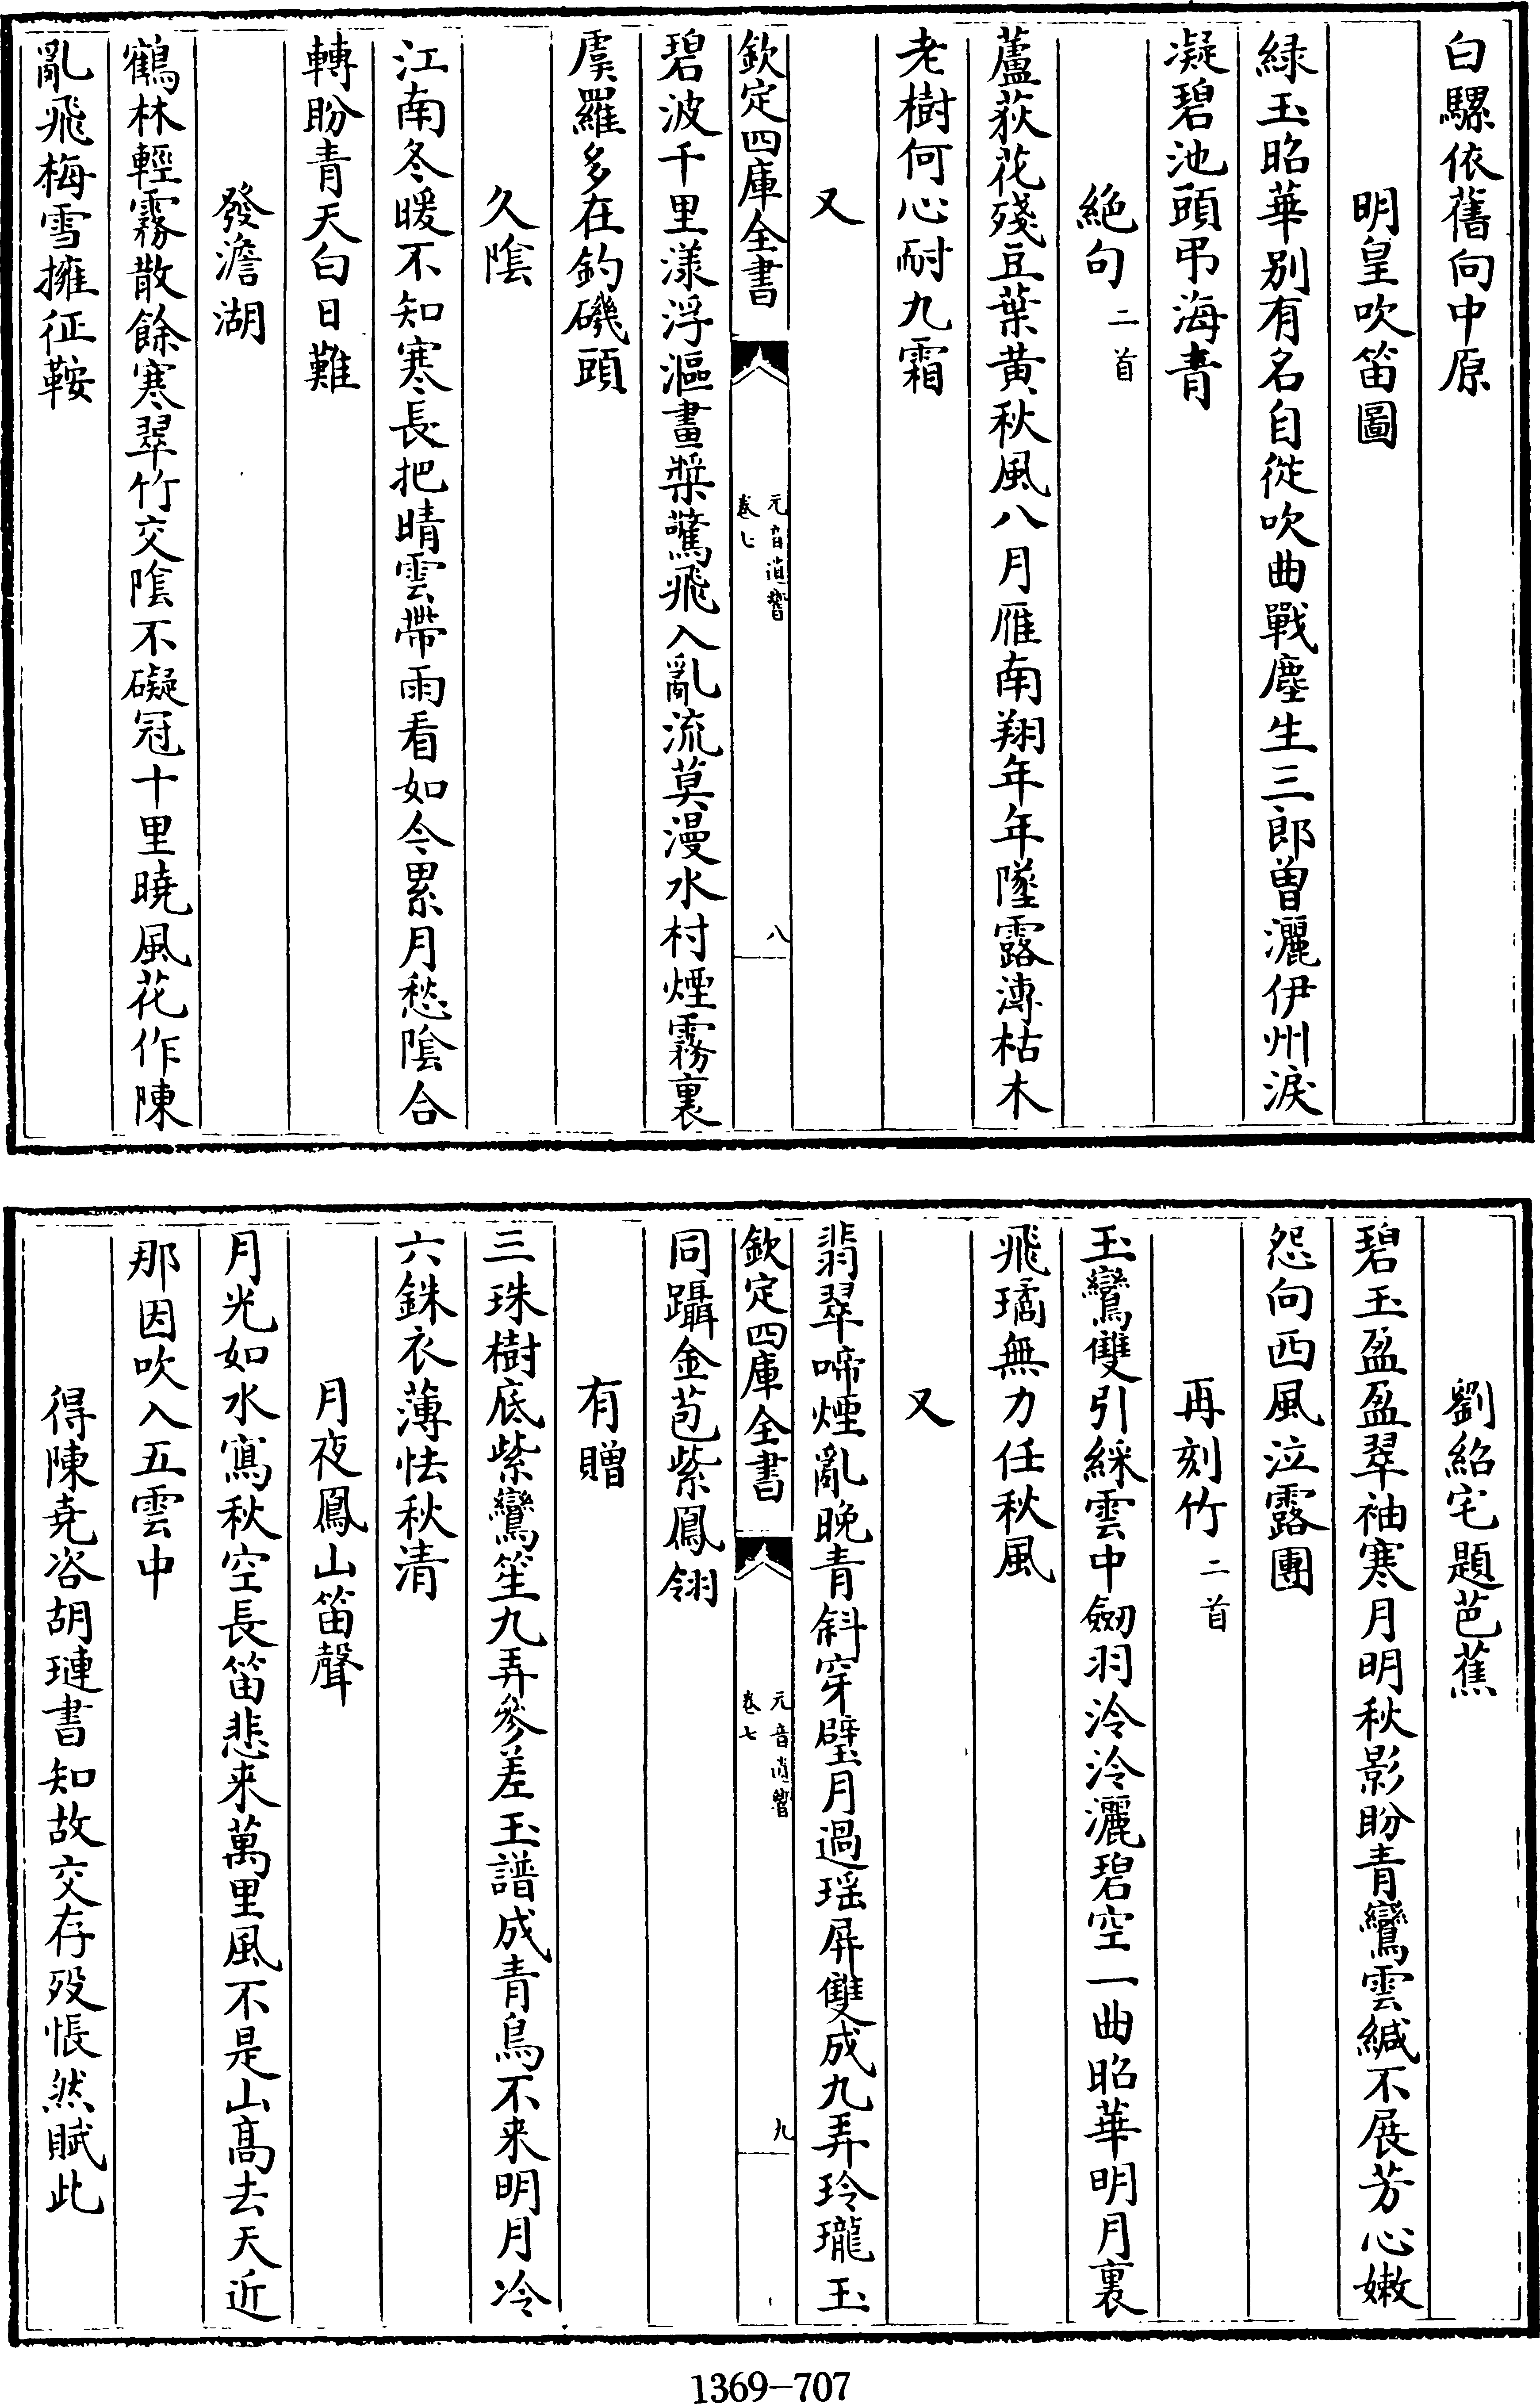 白騾依舊向中原
明皇吹笛圖
緑玉昭華别有名自從吹曲戰塵生三郎曽灑伊州淚
凝碧池頭弔海青
絶句二首
蘆荻花殘豆葉黄秋風八月雁南翔年年墜露漙枯木
老樹何心耐九霜
又
欽定四庫全書
元音遺響
卷七
八
碧波千里漾浮漚畫槳驚飛入亂流莫漫水村煙霧裏
虞羅多在釣磯頭
久隂
江南冬暖不知寒長把晴雲帶雨看如今累月愁隂合
轉盼青天白日難
發澹湖
鶴林輕霧散餘寒翠竹交隂不礙冠十里曉風花作陳
亂飛梅雪擁征鞍
劉紹宅題芭蕉
碧玉盈盈翠袖寒月明秋影盼青鸞雲緘不展芳心嫩
怨向西風泣露團
再刻竹二首
玉鸞雙引綵雲中劒羽泠泠灑碧空一曲昭華明月裏
飛璚無力任秋風
又
翡翠啼煙亂晚青斜穿璧月過瑶屏雙成九弄玲瓏玉
欽定四庫全書
元音遺響
卷七
九
同躡金苞紫鳳翎
有贈
三珠樹底紫鸞笙九弄參差玉譜成青鳥不来明月冷
六銖衣薄怯秋清
月夜鳳山笛聲
月光如水寫秋空長笛悲来萬里風不是山髙去天近
那因吹入五雲中
得陳尭咨胡璉書知故交存殁悵然賦此
1369-707